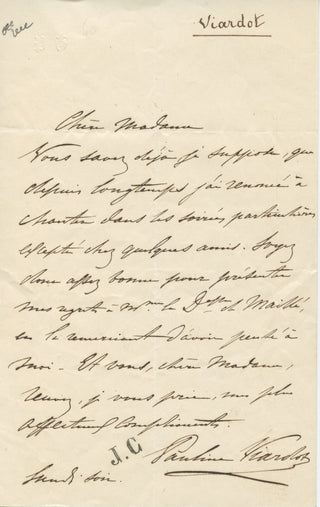 Viardot
Chère Madame
Vous savez déjà je suppose, que
depuis longtemps j'ai renoncé à
chanter dans les soirées particulières
excepté chez quelques amis. Soyez
donc assez bonne pour présenter
mes regrets à Mme la Dsse de Maillé,
en la remerciant d'avoir pensé à
moi - Et vous, chère Madame,
recevez, je vous prie, mes plus
affectueux compliments.
J.C
Pauline Viardot
Lundi soir.